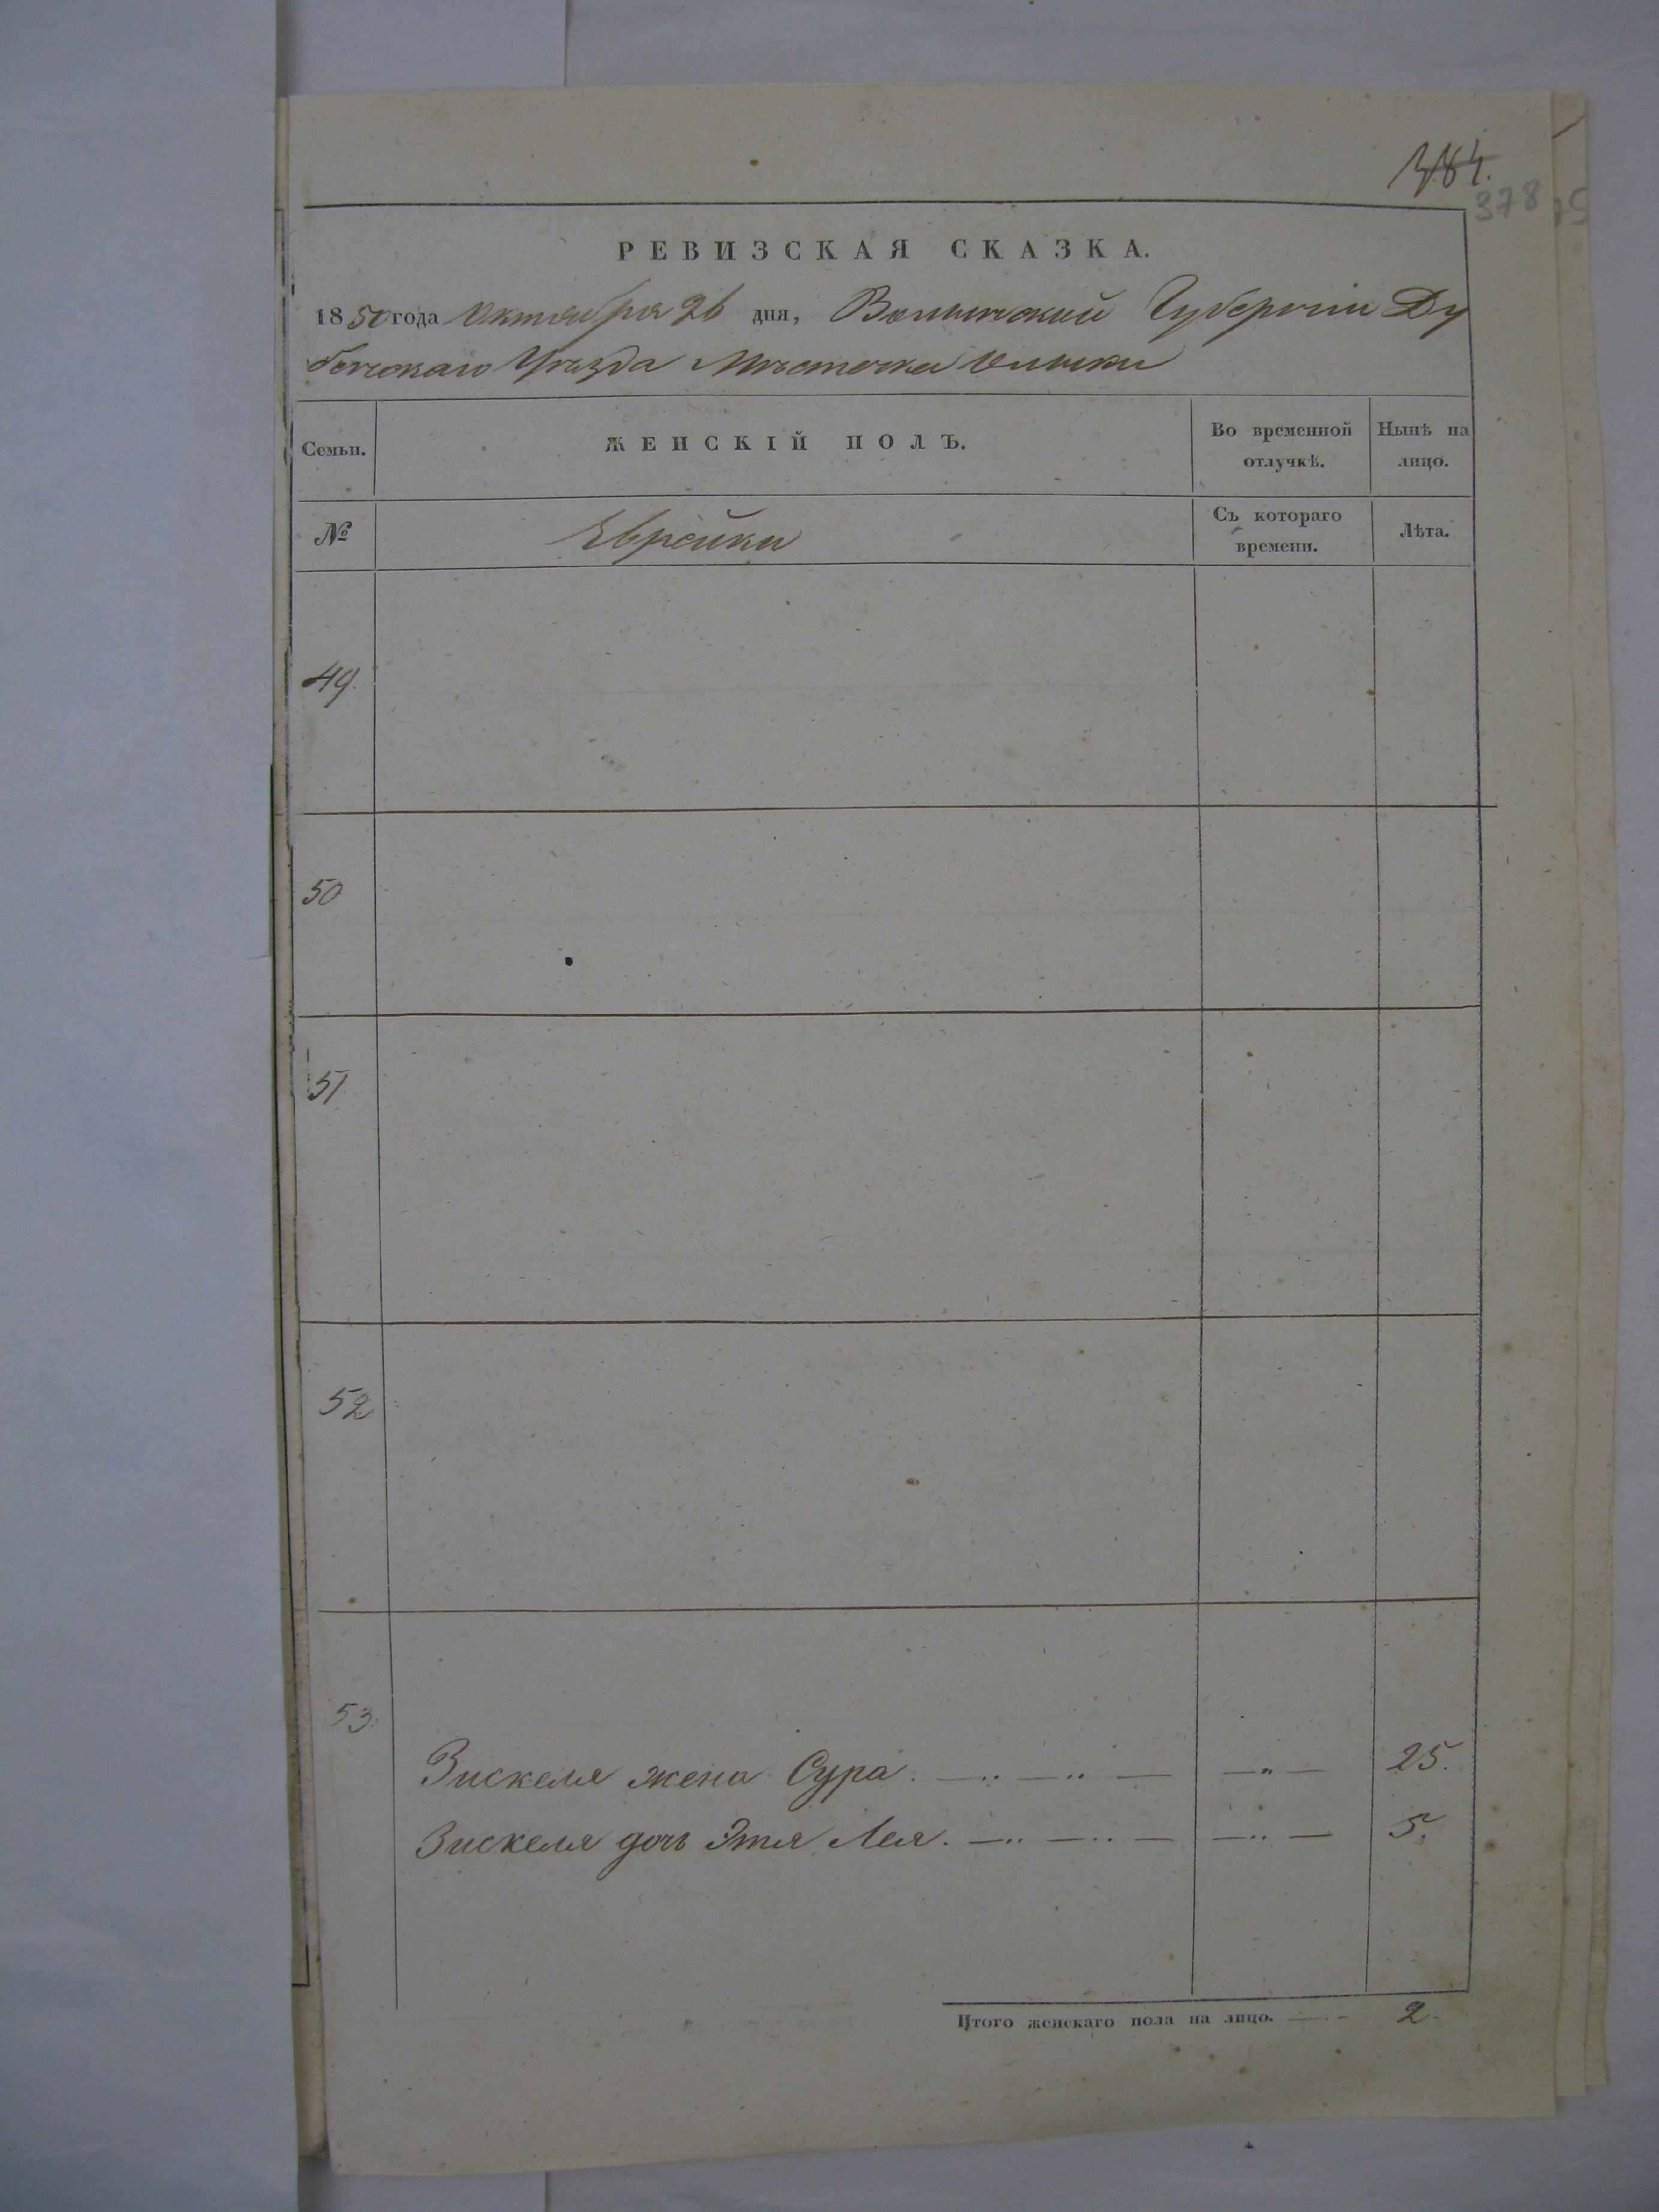 384.
378
РЕВИЗСКАЯ СКАЗКА.
1850 года Октября 26 дня, Волынской Губернии Ду
бенскаго Уѣзда Мѣстечка Олыки
Семьи.
ЖЕНСКІЙ ПОЛЪ.
Во временной отлучкѣ.
Нынѣ на лицо.
№
Еврейки
Съ котораго времени.
Лѣта.
49.
50
51
52
53.
Зискеля жена Сура. — „ — „ — — „ — 25.
Зискеля дочь Этя Лея. — „ — „ — — „ — 5.
Итого женскаго пола на лицо. — 2.